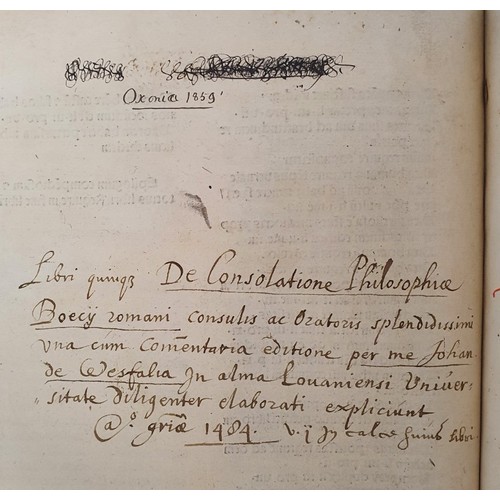 Oxoniæ 1859.
Libri quinqꝫ De Consolatione Philosophiæ
Boecij romani consulis ac Oratoris splendidissimi
vna cum Com̄entaria editione per me Johan
de Wesfalia Jn alma Louaniensi Univer-
sitate diligenter elaborati expliciunt
Aº. griæ̃ 1484. v. ij Jn calce huius libri